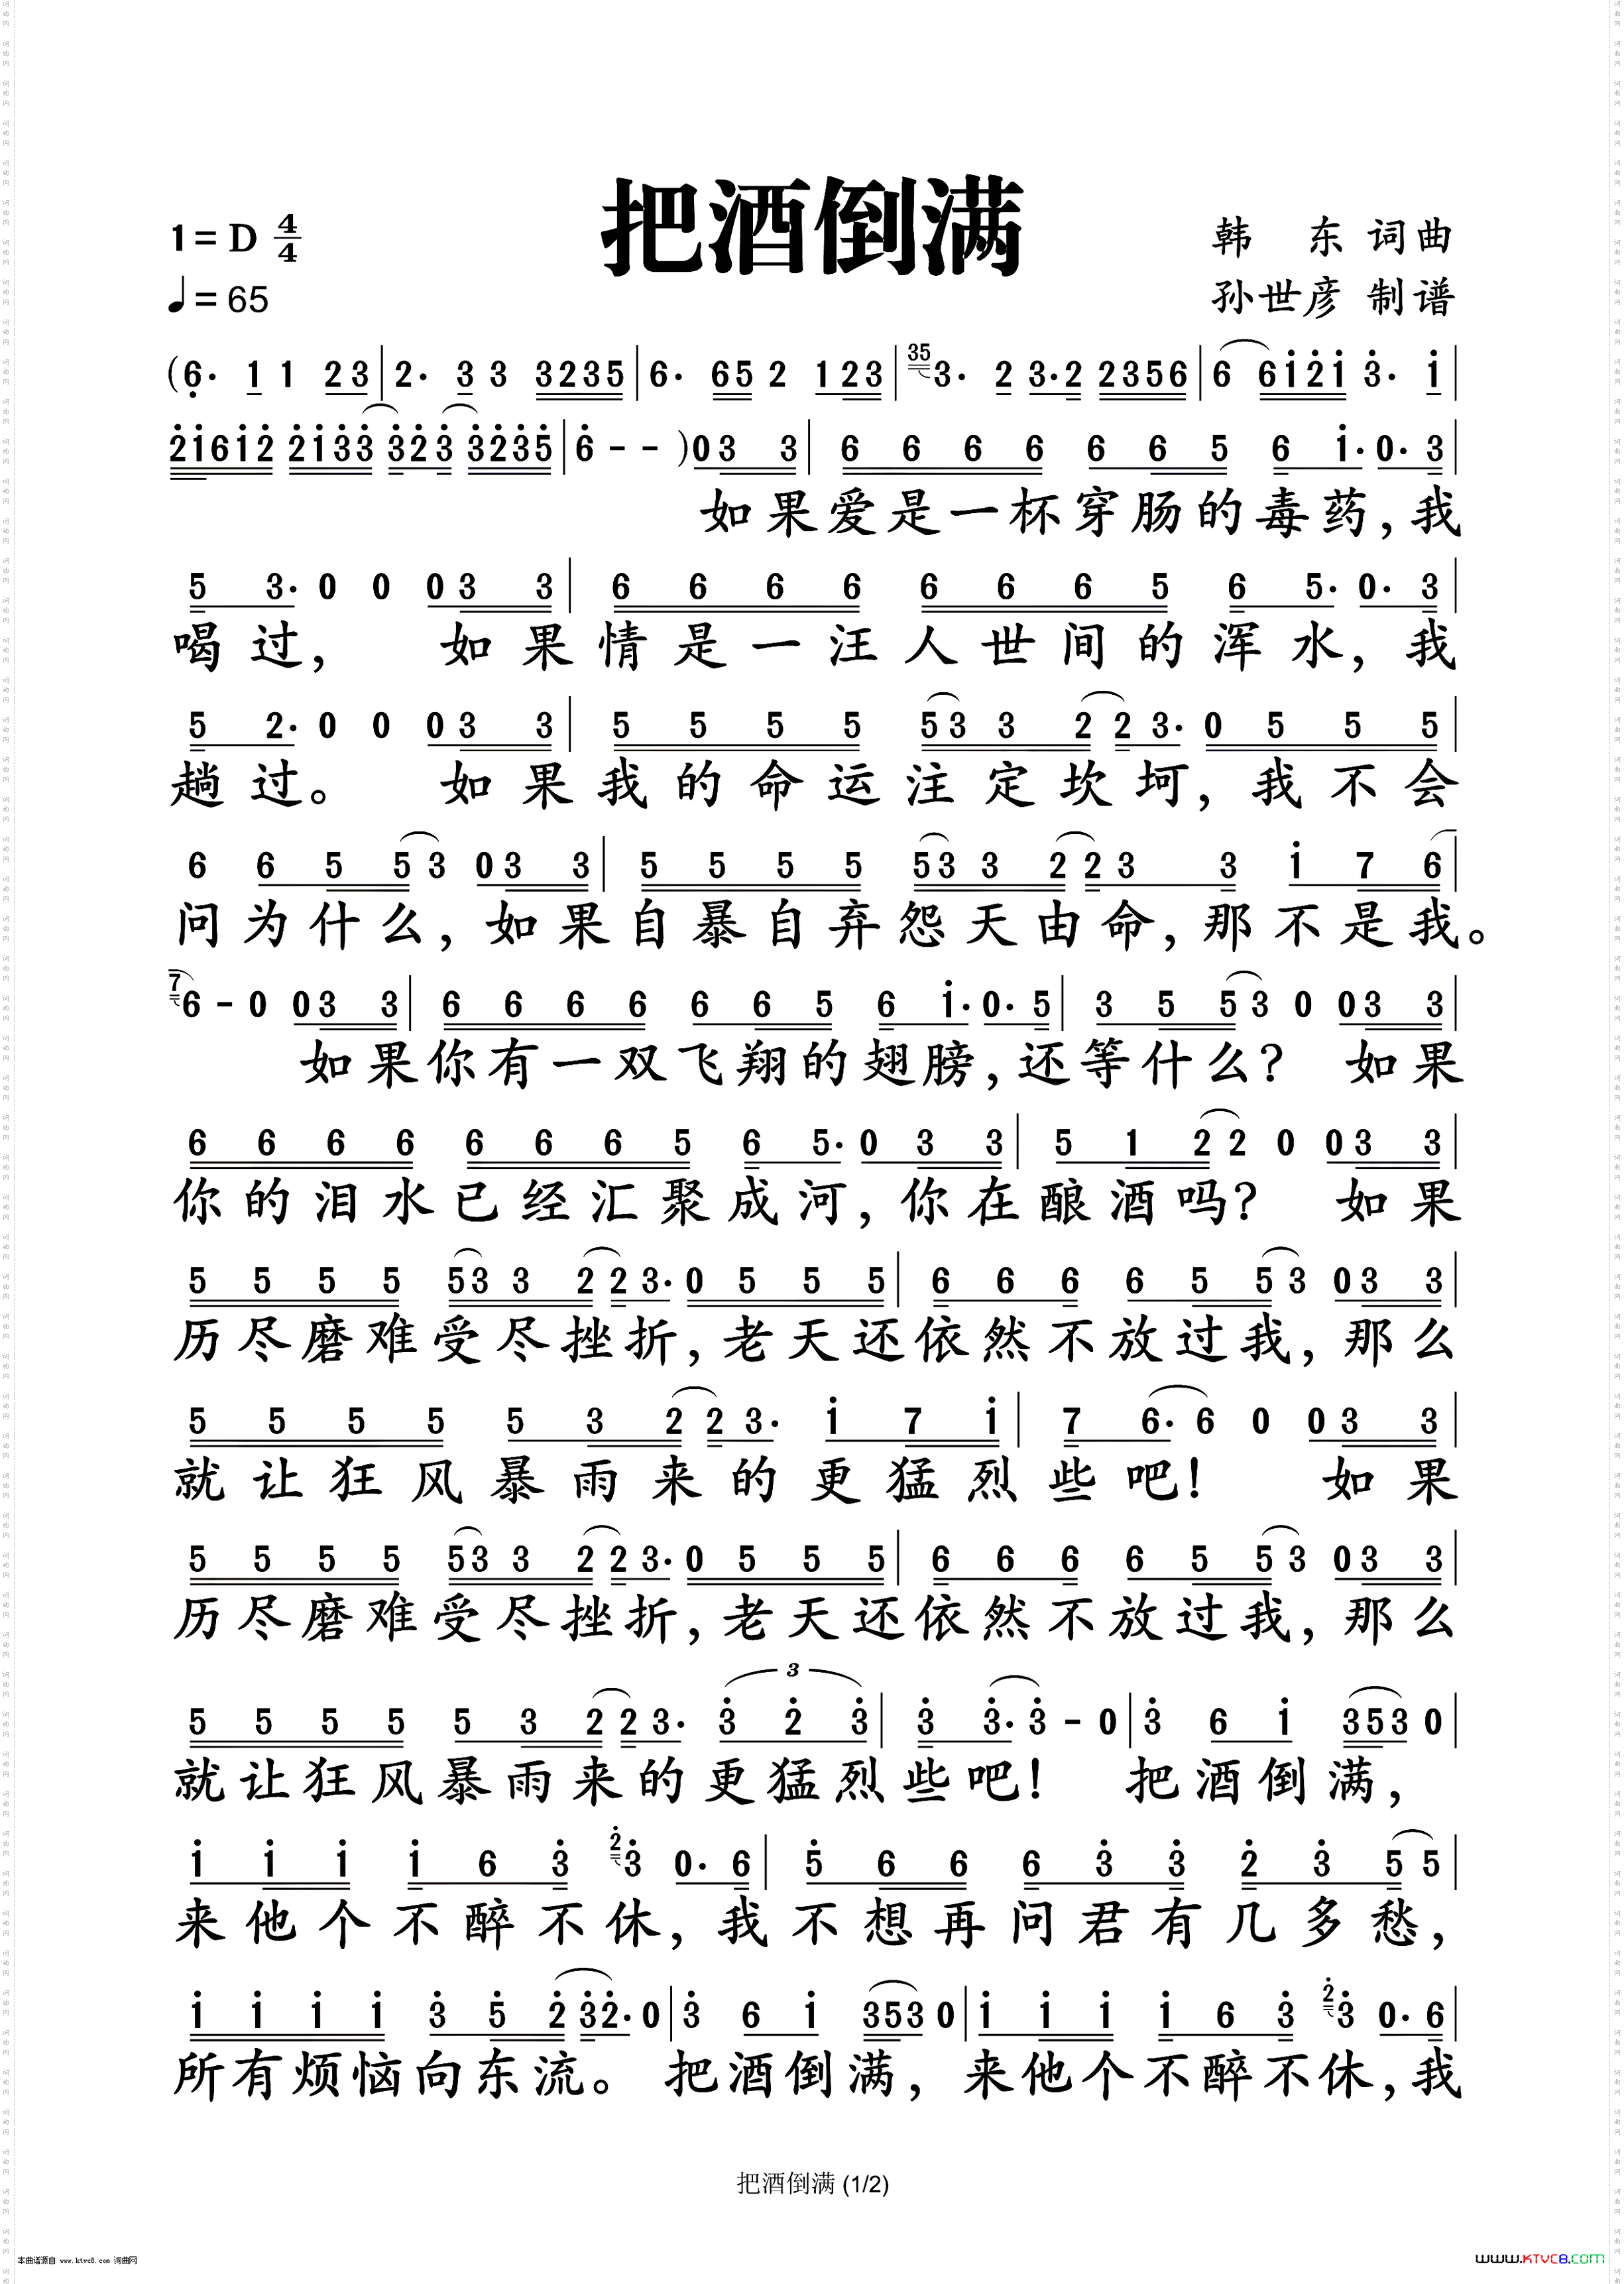 把酒倒满
1=D 4/4
♩=65
韩 东 词曲
孙世彦 制谱
(6· 1 1 23|2· 3 3 3235|6· 65 2 123|35 3· 2 3·2 2356|6 6121 3· 1|
21612 2133 323 3235|6 - - )03 3|6 6 6 6 6 6 5 6 1·0· 3|
如果爱是一杯穿肠的毒药,我
5 3· 0 0 03 3|6 6 6 6 6 6 6 5 6 5· 0· 3|
喝过, 如果情是一汪人世间的浑水,我
5 2· 0 0 03 3|5 5 5 5 53 3 2 2 3· 0 5 5 5|
趟过。 如果我的命运注定坎坷,我不会
6 6 5 5 3 03 3|5 5 5 5 53 3 2 2 3 3 1 7 6|
问为什么,如果自暴自弃怨天由命,那不是我。
7 6 - 0 03 3|6 6 6 6 6 6 5 6 1·0· 5|3 5 5 3 0 03 3|
如果你有一双飞翔的翅膀,还等什么? 如果
6 6 6 6 6 6 6 5 6 5· 0 3 3|5 1 2 2 0 03 3|
你的泪水已经汇聚成河,你在酿酒吗? 如果
5 5 5 5 53 3 2 2 3· 0 5 5 5|6 6 6 6 5 5 3 03 3|
历尽磨难受尽挫折,老天还依然不放过我,那么
5 5 5 5 5 3 2 2 3· 1 7 1|7 6· 6 0 03 3|
就让狂风暴雨来的更猛烈些吧! 如果
5 5 5 5 53 3 2 2 3· 0 5 5 5|6 6 6 6 5 5 3 03 3|
历尽磨难受尽挫折,老天还依然不放过我,那么
3
5 5 5 5 5 3 2 2 3· 3 2 3|3 3· 3 - 0|3 6 1 353 0|
就让狂风暴雨来的更猛烈些吧! 把酒倒满,
1 1 1 1 6 3 2 3 0· 6|5 6 6 6 3 3 2 3 5 5|
来他个不醉不休,我不想再问君有几多愁,
1 1 1 1 3 5 2 32· 0|3 6 1 353 0|1 1 1 1 6 3 2 3 0· 6|
所有烦恼向东流。把酒倒满,来他个不醉不休,我
把酒倒满 (1/2)
本曲谱源自 www.ktvc8.com 词曲网
www.KTVC8.com